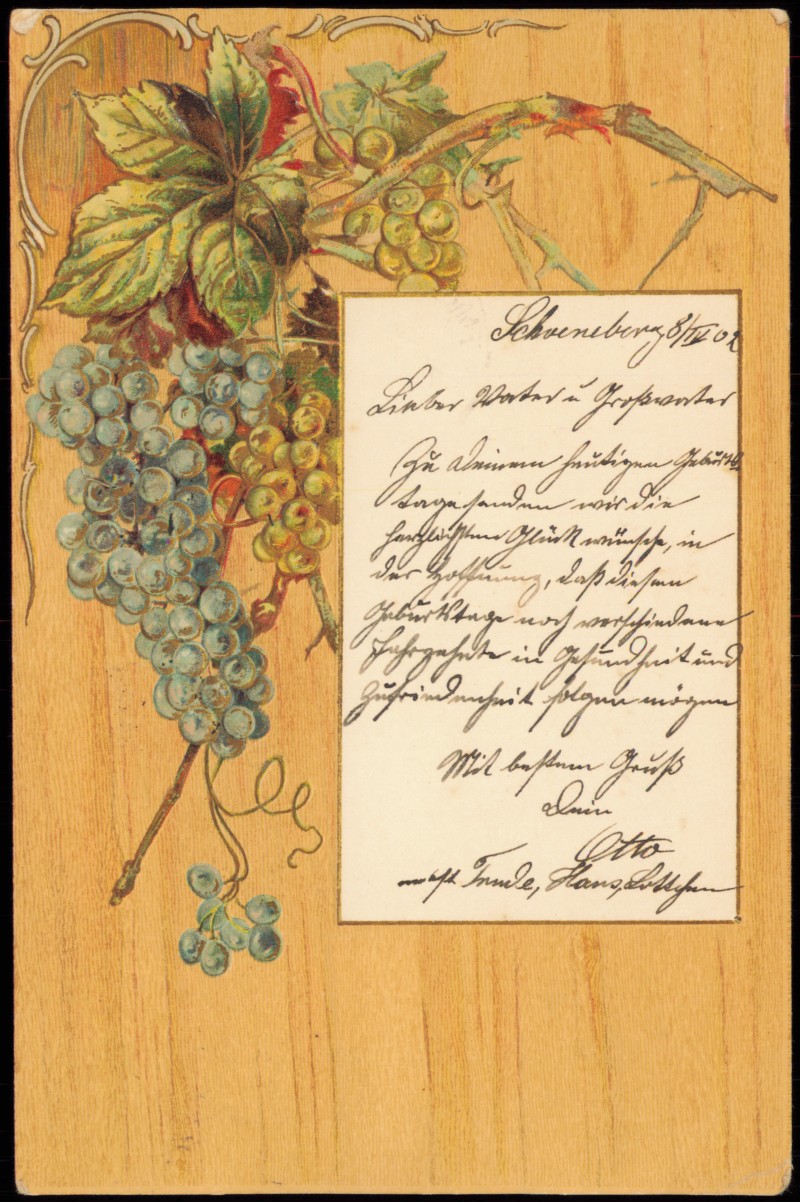 Schoeneberg 8/IV 02
Lieber Vater u Großvater
Zu Deinem heutigen Geburts
tage senden wir die
herzlichsten Glückwünsche, in
der Hoffnung, daß diesem
Geburtstage noch verschiedene
Jahrzehnte in Gesundheit und
Zufriedenheit folgen mögen
Mit bestem Gruß
Dein
Otto
nebst Trude, Hans, Lottchen